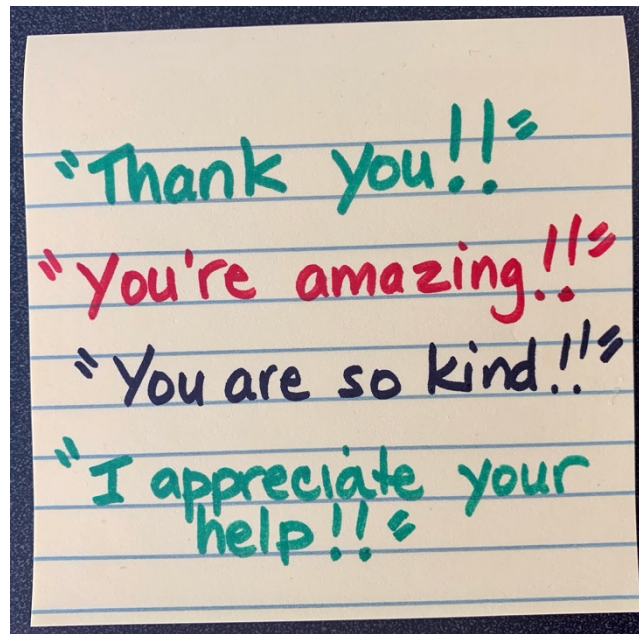 "Thank you!!"
"You're amazing!!"
"You are so kind!!"
"I appreciate your
help!!"